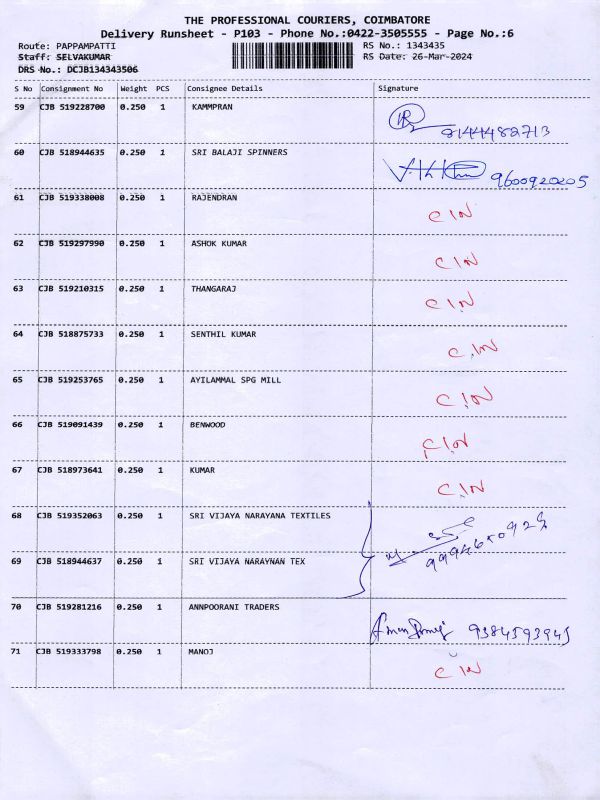 THE PROFESSIONAL COURIERS, COIMBATORE
Delivery Runsheet - P103 - Phone No.:0422-3505555 - Page No.:6
Route: PAPPAMPATTI RS No.: 1343435
Staff: SELVAKUMAR RS Date: 26-Mar-2024
DRS No.: DCJB134343506
S No Consignment No Weight PCS Consignee Details Signature
59 CJB 519228700 0.250 1 KAMMPRAN
9144482713
60 CJB 518944635 0.250 1 SRI BALAJI SPINNERS
9600920205
61 CJB 519338008 0.250 1 RAJENDRAN
C/N
62 CJB 519297990 0.250 1 ASHOK KUMAR
C/N
63 CJB 519210315 0.250 1 THANGARAJ
C/N
64 CJB 518875733 0.250 1 SENTHIL KUMAR
C/N
65 CJB 519253765 0.250 1 AYILAMMAL SPG MILL
C/N
66 CJB 519091439 0.250 1 BENWOOD
C/N
67 CJB 518973641 0.250 1 KUMAR
C/N
68 CJB 519352063 0.250 1 SRI VIJAYA NARAYANA TEXTILES
69 CJB 518944637 0.250 1 SRI VIJAYA NARAYNAN TEX
70 CJB 519281216 0.250 1 ANNPOORANI TRADERS
9384593945
71 CJB 519333798 0.250 1 MANOJ
C/N